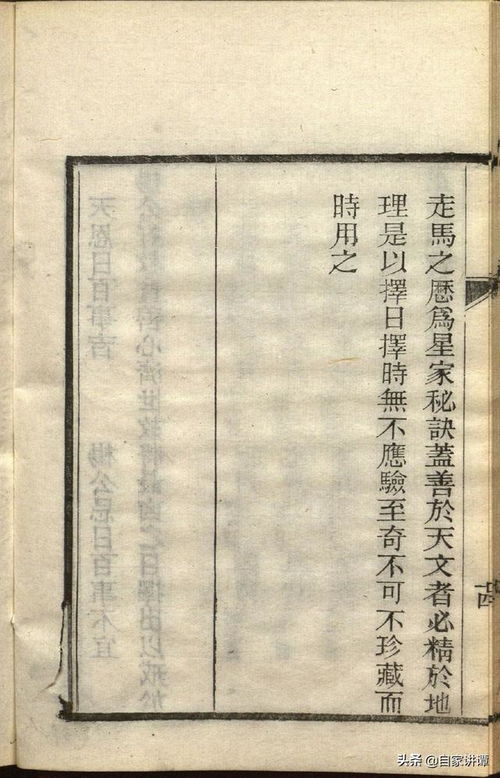 走馬之曆爲星家秘訣蓋善於天文者必精於地
理是以擇日擇時無不應驗至奇不可不珍藏而
時用之
头条@自家讲谭